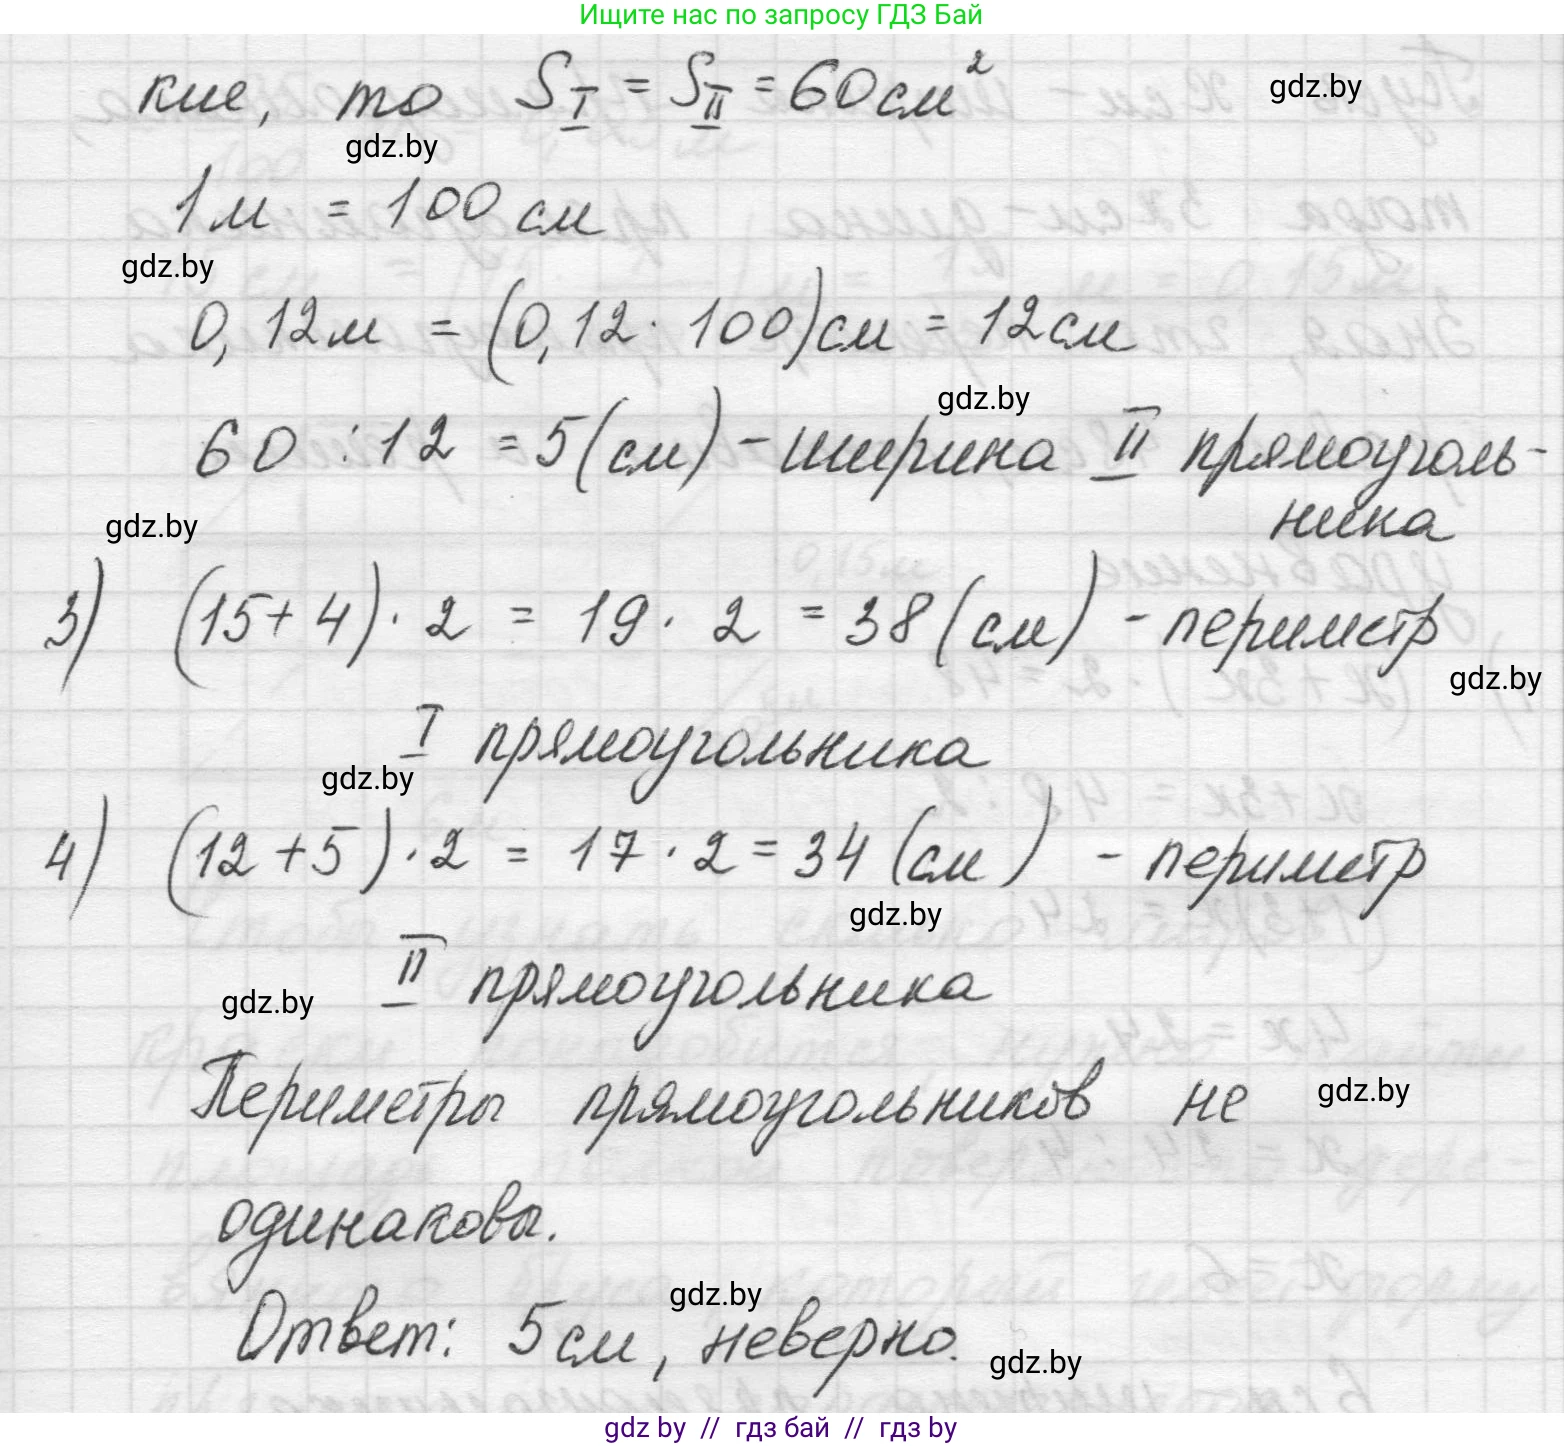 Ищите нас по запросу ГДЗ Бай
кие, то S_I = S_II = 60 см²
gdz.by
gdz.by
1 м = 100 см
gdz.by
0,12 м = (0,12 · 100) см = 12 см
gdz.by
60 : 12 = 5 (см) - ширина II прямоуголь-
ника
gdz.by
3) (15 + 4) · 2 = 19 · 2 = 38 (см) - периметр
gdz.by
I прямоугольника
gdz.by
4) (12 + 5) · 2 = 17 · 2 = 34 (см) - периметр
gdz.by
II прямоугольника
gdz.by
Периметры прямоугольников не
gdz.by
одинаковы.
gdz.by
Ответ: 5 см, неверно.
gdz.by
gdz by // гдз бай // гдз by